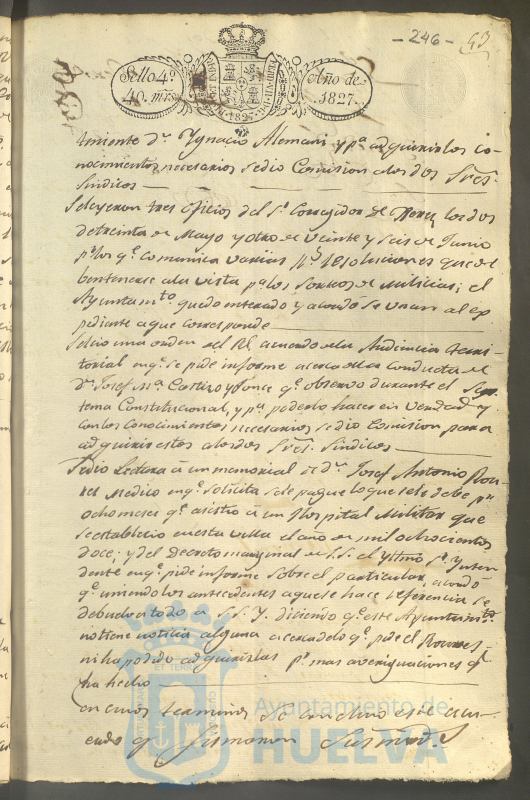 -246- 43
Sello 4º Año de
40. mrs. 1827.
1827.
teniente dn. Ygnacio Alemani y pa. adquirir los co-
nocimientos necesarios se dio Comision a los dos Sres.
Sindicos
Se leyeron tres oficios del Sr. Corregidor de los dos
de treinta de Mayo y otro de veinte y seis de Junio
pr. los qe. comunica varias Rs. resoluciones que de
ben tenerse a la vista pa. los Sorteos de Milicias; el
Ayuntamto. quedo enterado y acordó se unan al ex
pediente a que corresponde
Se dio una orden del Rl. acuerdo de la Audiencia terri-
torial en qe. se pide informe acerca de la conducta de
dn. Josef Ma. y Ponce qe. observo durante el Sys-
tema Constitucional, y pa. poderlo hacer en verdad y
con los conocimientos necesarios se dio Comision para
adquirir estos a los dos Sres. Sindicos
Se dio Lectura a un memorial de dn. Josef Antonio
Medico en qe. solicita se le pague lo que se le debe pr.
ocho meses qe. asistio a un Hospital Militar que
se establecio en esta villa el año de mil ochocientos
doce; y del Decreto marginal de S.S. el Yltmo. Sr. Ynten
dente en qe. pide informe sobre el particular, acordó
qe. uniendo los antecedentes a que se hace referencia se
debuelva todo a S.S.Y. diciendo qe. este Ayuntamto.
no tiene noticia alguna acerca de lo qe. pide el
ni ha podido adquirirlas pr. mas averiguaciones qe.
ha hecho
en cuios terminos se concluyo este acu-
erdo qe. firmaron Sus mrds.
Ayuntamiento de
HUELVA